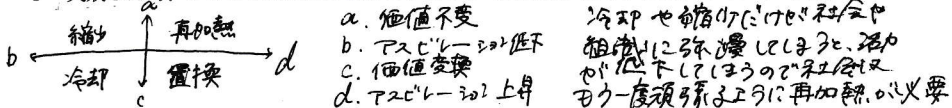 a
縮小 再加熱
b d
冷却 置換
c
a. 価値不変
b. アスピレーション低下
c. 価値変換
d. アスピレーション上昇
冷却や縮小だけが社会や
組織に弥漫してしまうと、活力
が低下してしまうので社会は
もう一度頑張るように再加熱が必要